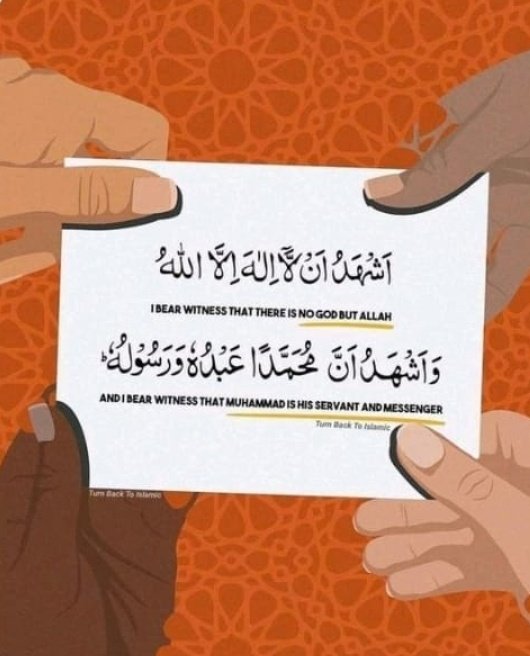 اَشْهَدُ اَنْ لَّاۤ اِلٰهَ اِلَّا اللهُ
I BEAR WITNESS THAT THERE IS NO GOD BUT ALLAH
وَاَشْهَدُ اَنَّ مُحَمَّدًا عَبْدُهٗ وَرَسُوْلُهٗؕ
AND I BEAR WITNESS THAT MUHAMMAD IS HIS SERVANT AND MESSENGER
Turn Back To Islamic
Turn Back To Islamic